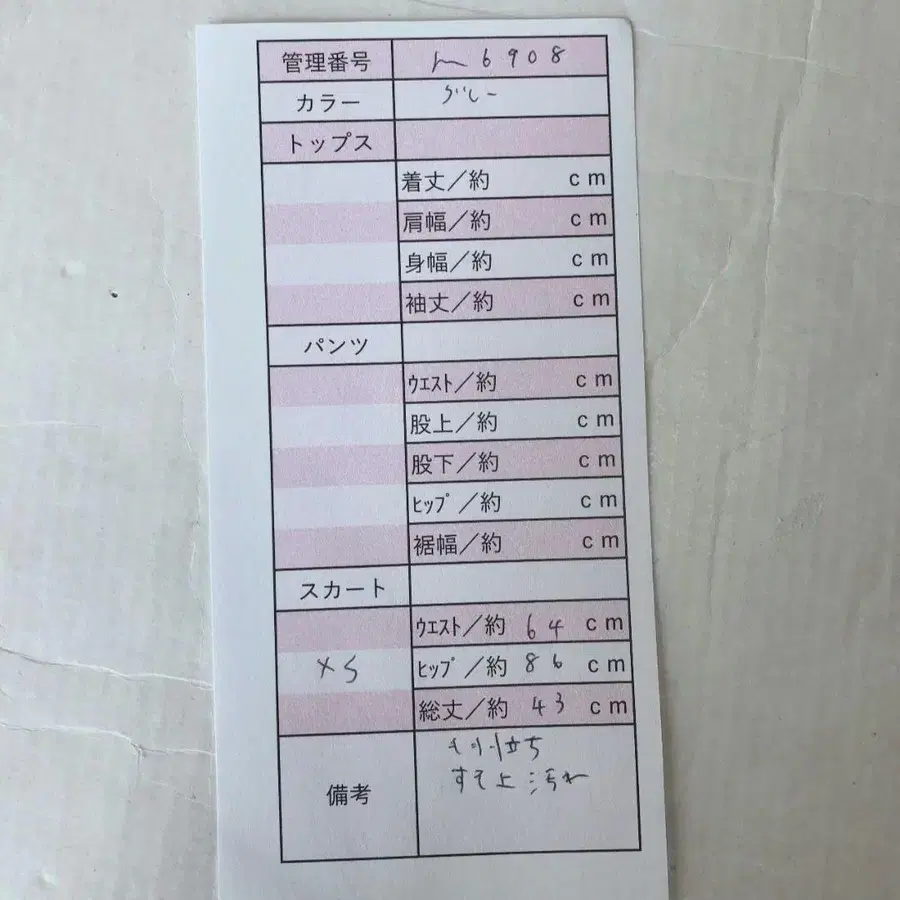 管理番号 m6908
カラー グレー
トップス
着丈／約 cm
肩幅／約 cm
身幅／約 cm
袖丈／約 cm
パンツ
ウエスト／約 cm
股上／約 cm
股下／約 cm
ヒップ／約 cm
裾幅／約 cm
スカート
ウエスト／約 64 cm
XS ヒップ／約 86 cm
総丈／約 43 cm
備考
立ち
すそ上 汚れ